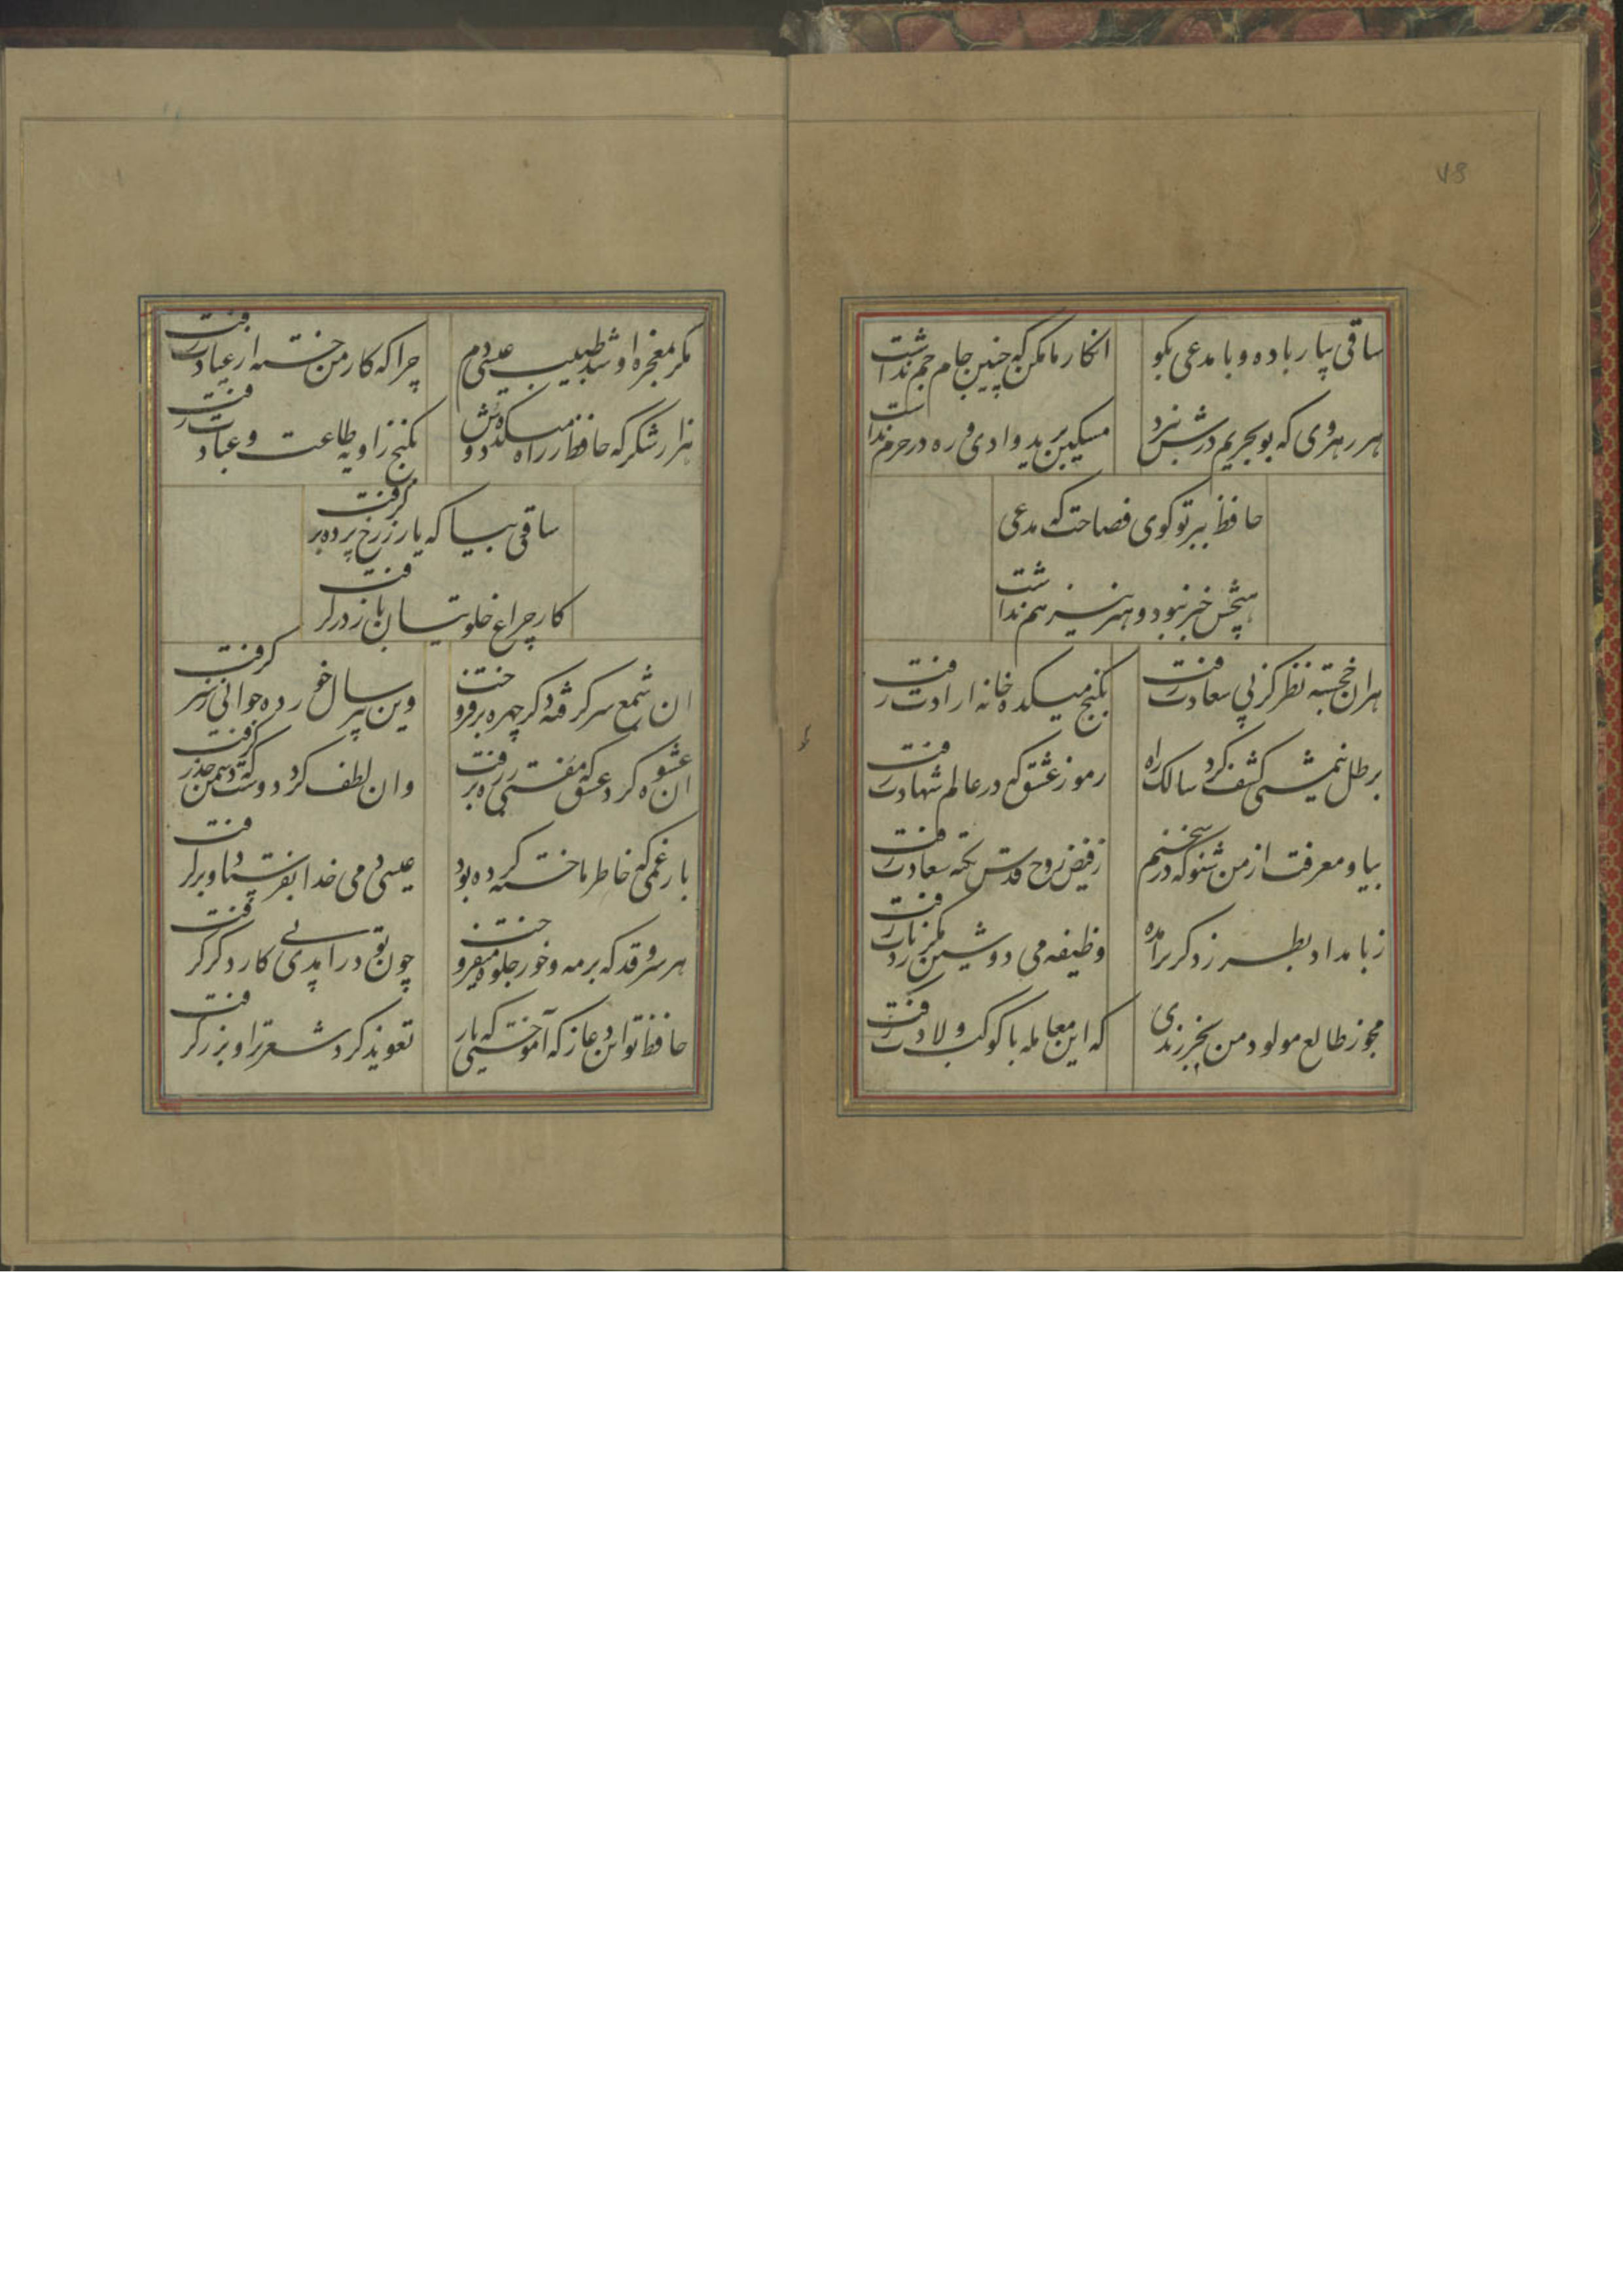 ۷۵
ساقی بیار باده و با مدعی بکو انکار ما مکن که چنین جام جم نداشت
هر رهروی که بو بحریم درش نبرد مسکین برید وادی و ره در حرم نداشت
حافظ ببر تو کوی فصاحت که مدعی
هیچش خبر نبود و هنر نیز هم نداشت
هر ان خجسته نظر کز پی سعادت رفت بکنج میکده و خانه ارادت رفت
برطل نیمشی کشف کرد سالک راه رموز عشق که در عالم شهادت رفت
بیا و معرفت از من شنو که در سخنم ز فیض روح قدس نکته سعادت رفت
ز بامداد بطرز دکر برامده وظیفه می دوشین مکر ز یادت رفت
مجو ز طالع مولود من بجز رندی که این معامله با کوکب ولادت رفت
مکر معجزه او شد طبیب عیسی دم چرا که کار من خسته از عیادت رفت
هزار شکر که حافظ ز راه میکده دوش بکنج زاویه طاعت و عبادت رفت
ساقی بیا که یار ز رخ پرده بر گرفت
کار چراغ خلوتیان باز در کرفت
ان شمع سر کرفته دکر چهره برفروخت وین پیر سال خورده جوانی ز سر کرفت
ان عشوه کرد عشق که مفتی ز ره برفت وان لطف کرد دوست که دشمن حذر کرفت
بار غمی که خاطر ما خسته کرده بود عیسی دمی خدا بفرستاد و بر کرفت
هر سرو قد که بر مه و خور جلوه میفروخت چون تو درامدی پی کار دکر کرفت
حافظ تو این دعا ز که آموختی که یار تعویذ کرد شعر ترا و بزر کرفت